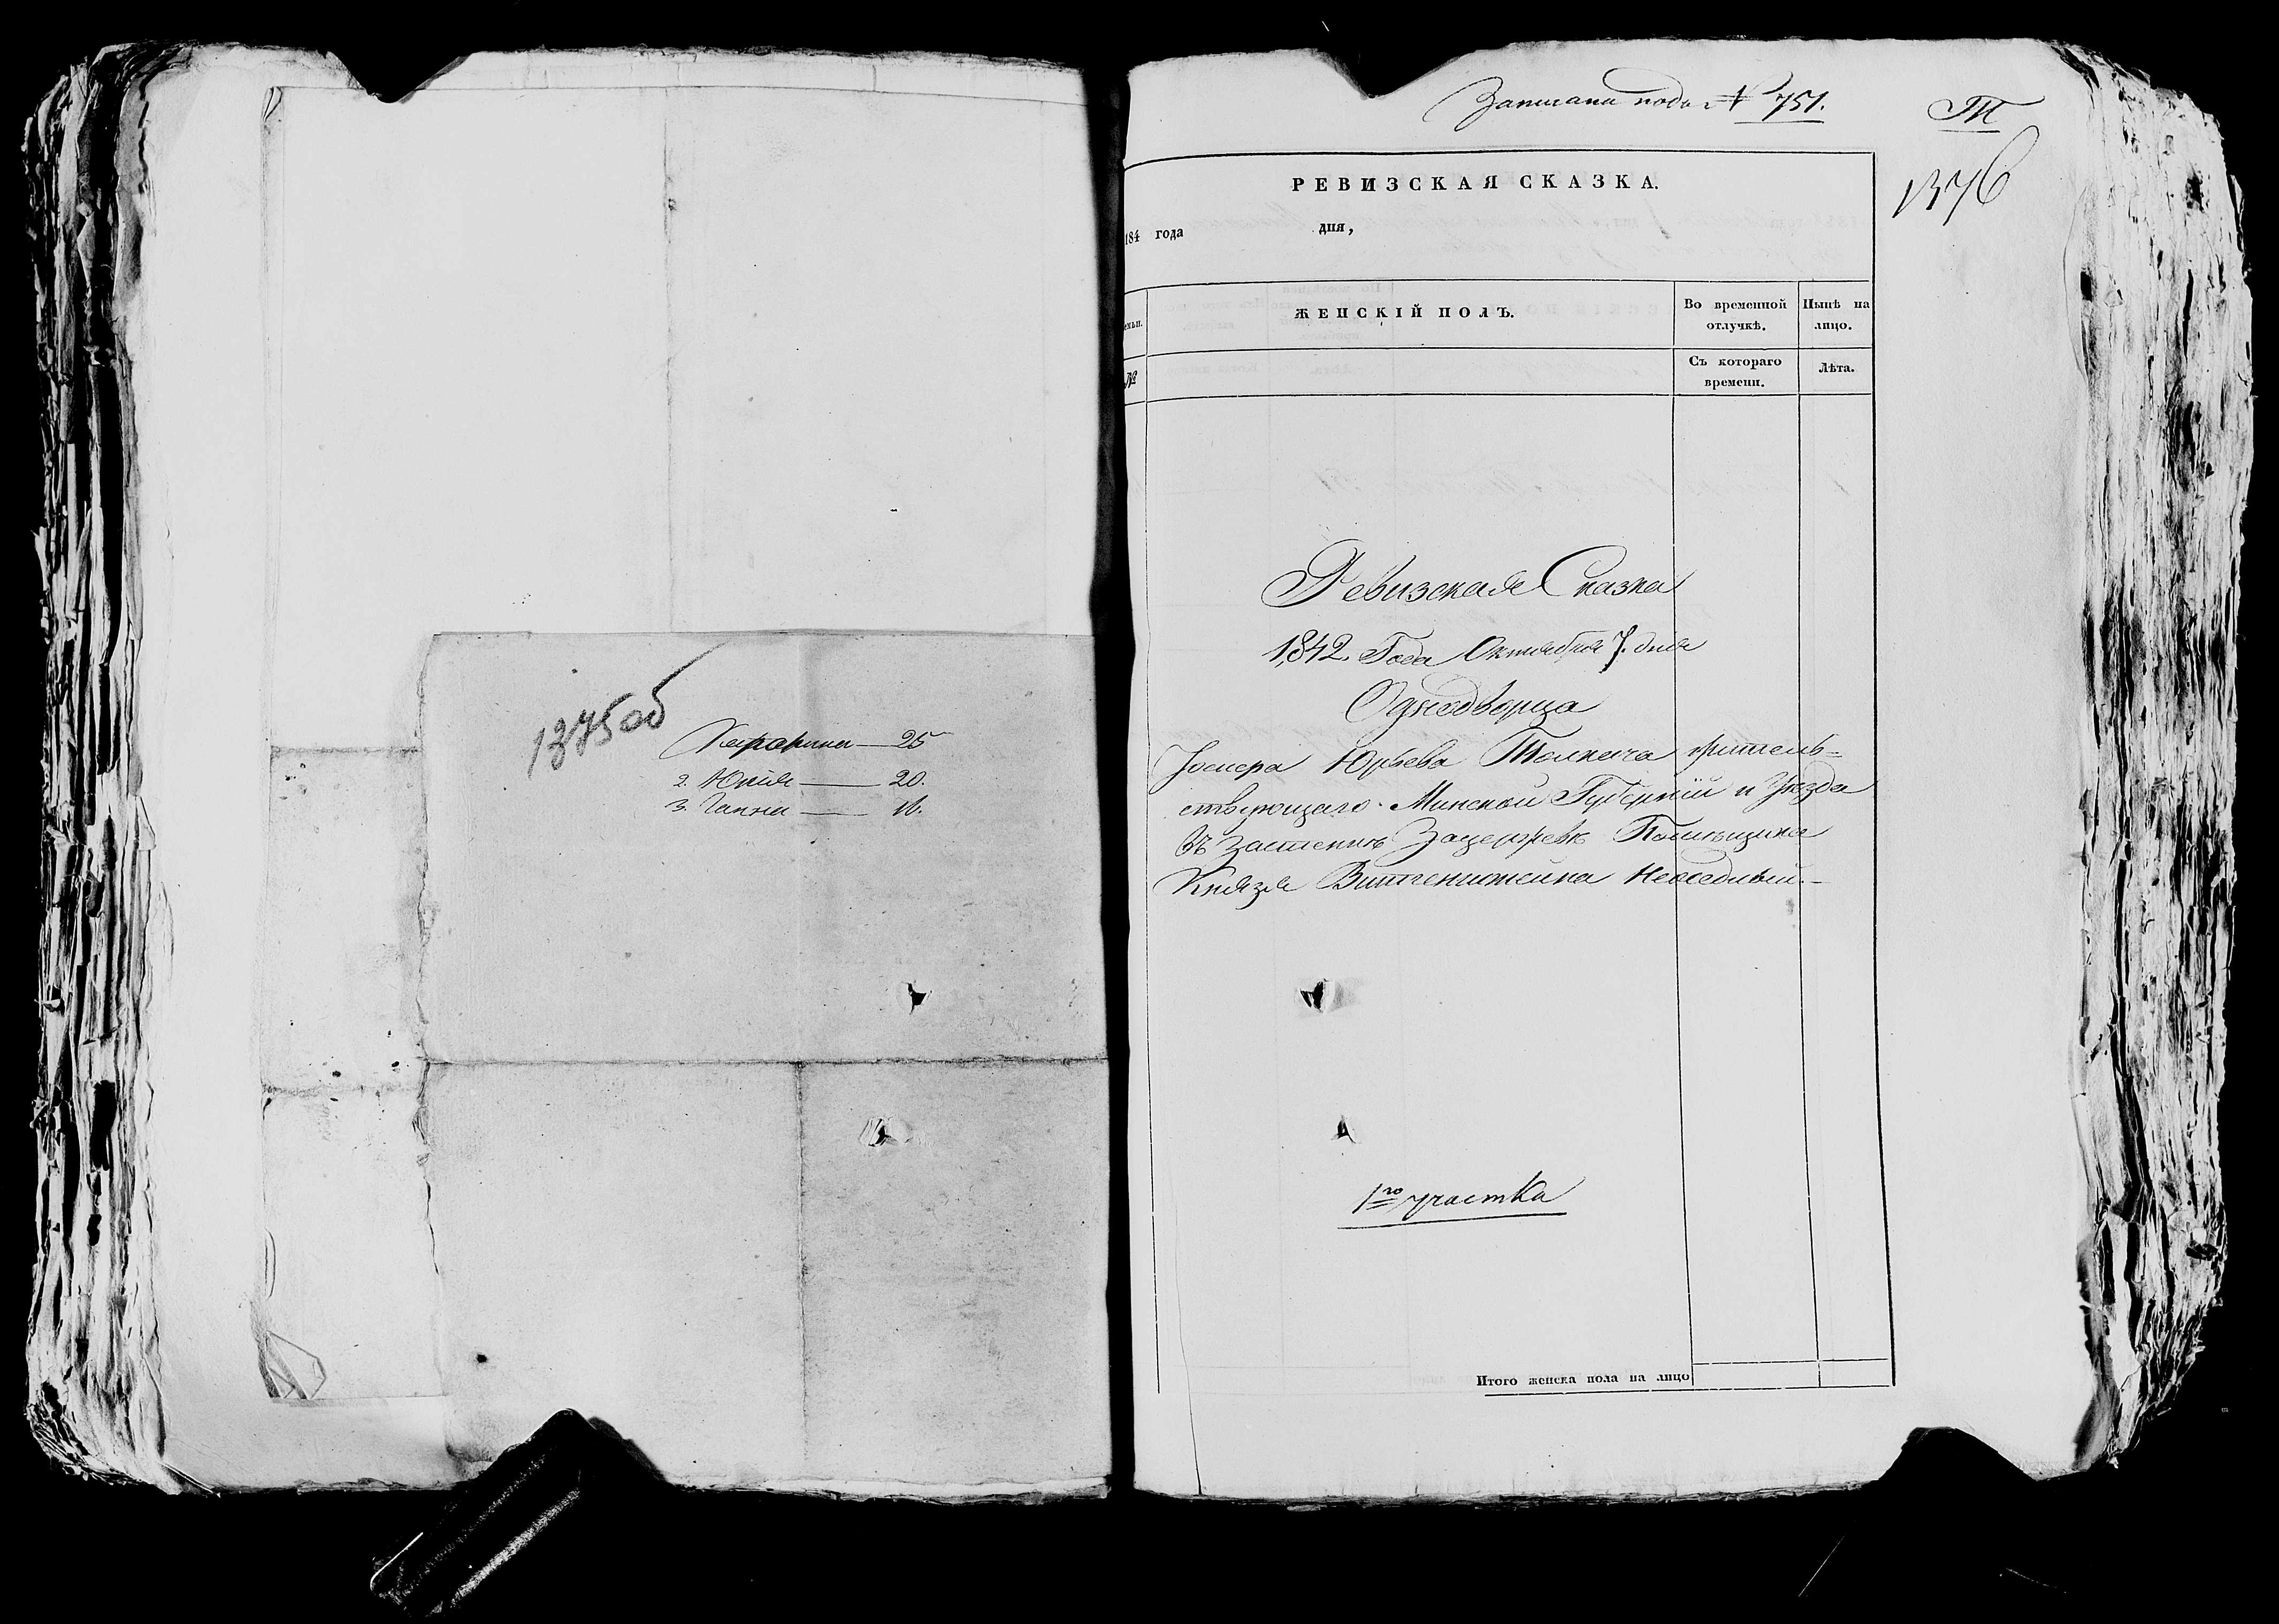 1375 об
Катерина — 25
2. Юлія — 20.
3. Ганна — 16.
Записана подъ № 751.
Т
1376
РЕВИЗСКАЯ СКАЗКА.
184 года дня,
ЖЕНСКІЙ ПОЛЪ.
Во временной отлучкѣ.
Нынѣ на лицо.
№
Съ котораго времени.
Лѣта.
Ревизская Сказка
1842. Года Октября 7. дня
Однодворца
Юрьева Толкача житель=
ствующаго Минской Губерніи и Уѣзда
Въ застенкѣ Помѣщика
Князя Витгенштейна
1го участка
Итого женска пола на лицо